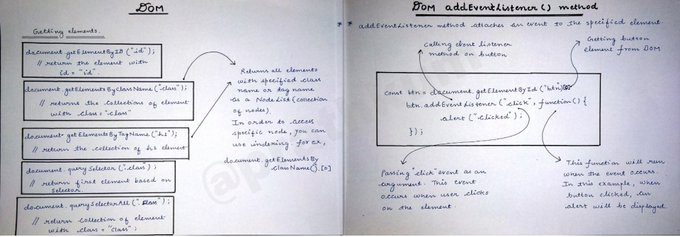 DOM
Getting elements:
document.getElementByID ("id");
// return the element with
id = "id"
document.getElementsByClassName (".class");
// returns the collection of element
with class= ".class"
document.getElementsByTagName ("h1");
// return the collection of h1 element
document.querySelector (".class");
// return first element based on
selector.
document.querySelectorAll (".class");
// return collection of element
with class = "class";
Returns all elements
with specified class
name or tag name
as a NodeList (collection
of nodes).
In order to access
specific node, you can
use indexing for ex,
document.getElementsBy
ClassName().[0]
DOM addEventListener() method
* addEventListener method attaches an event to the specified element
Calling event listener
method on button
Getting button
element from DOM
const btn = document.getElementById ("btn")
btn.addEventListener ("click", function() {
alert ("clicked");
});
Passing "click" event as an
argument. This event
occurs when user clicks
on the element
This function will run
when the event occurs.
In this example, when
button clicked, an
alert will be displayed